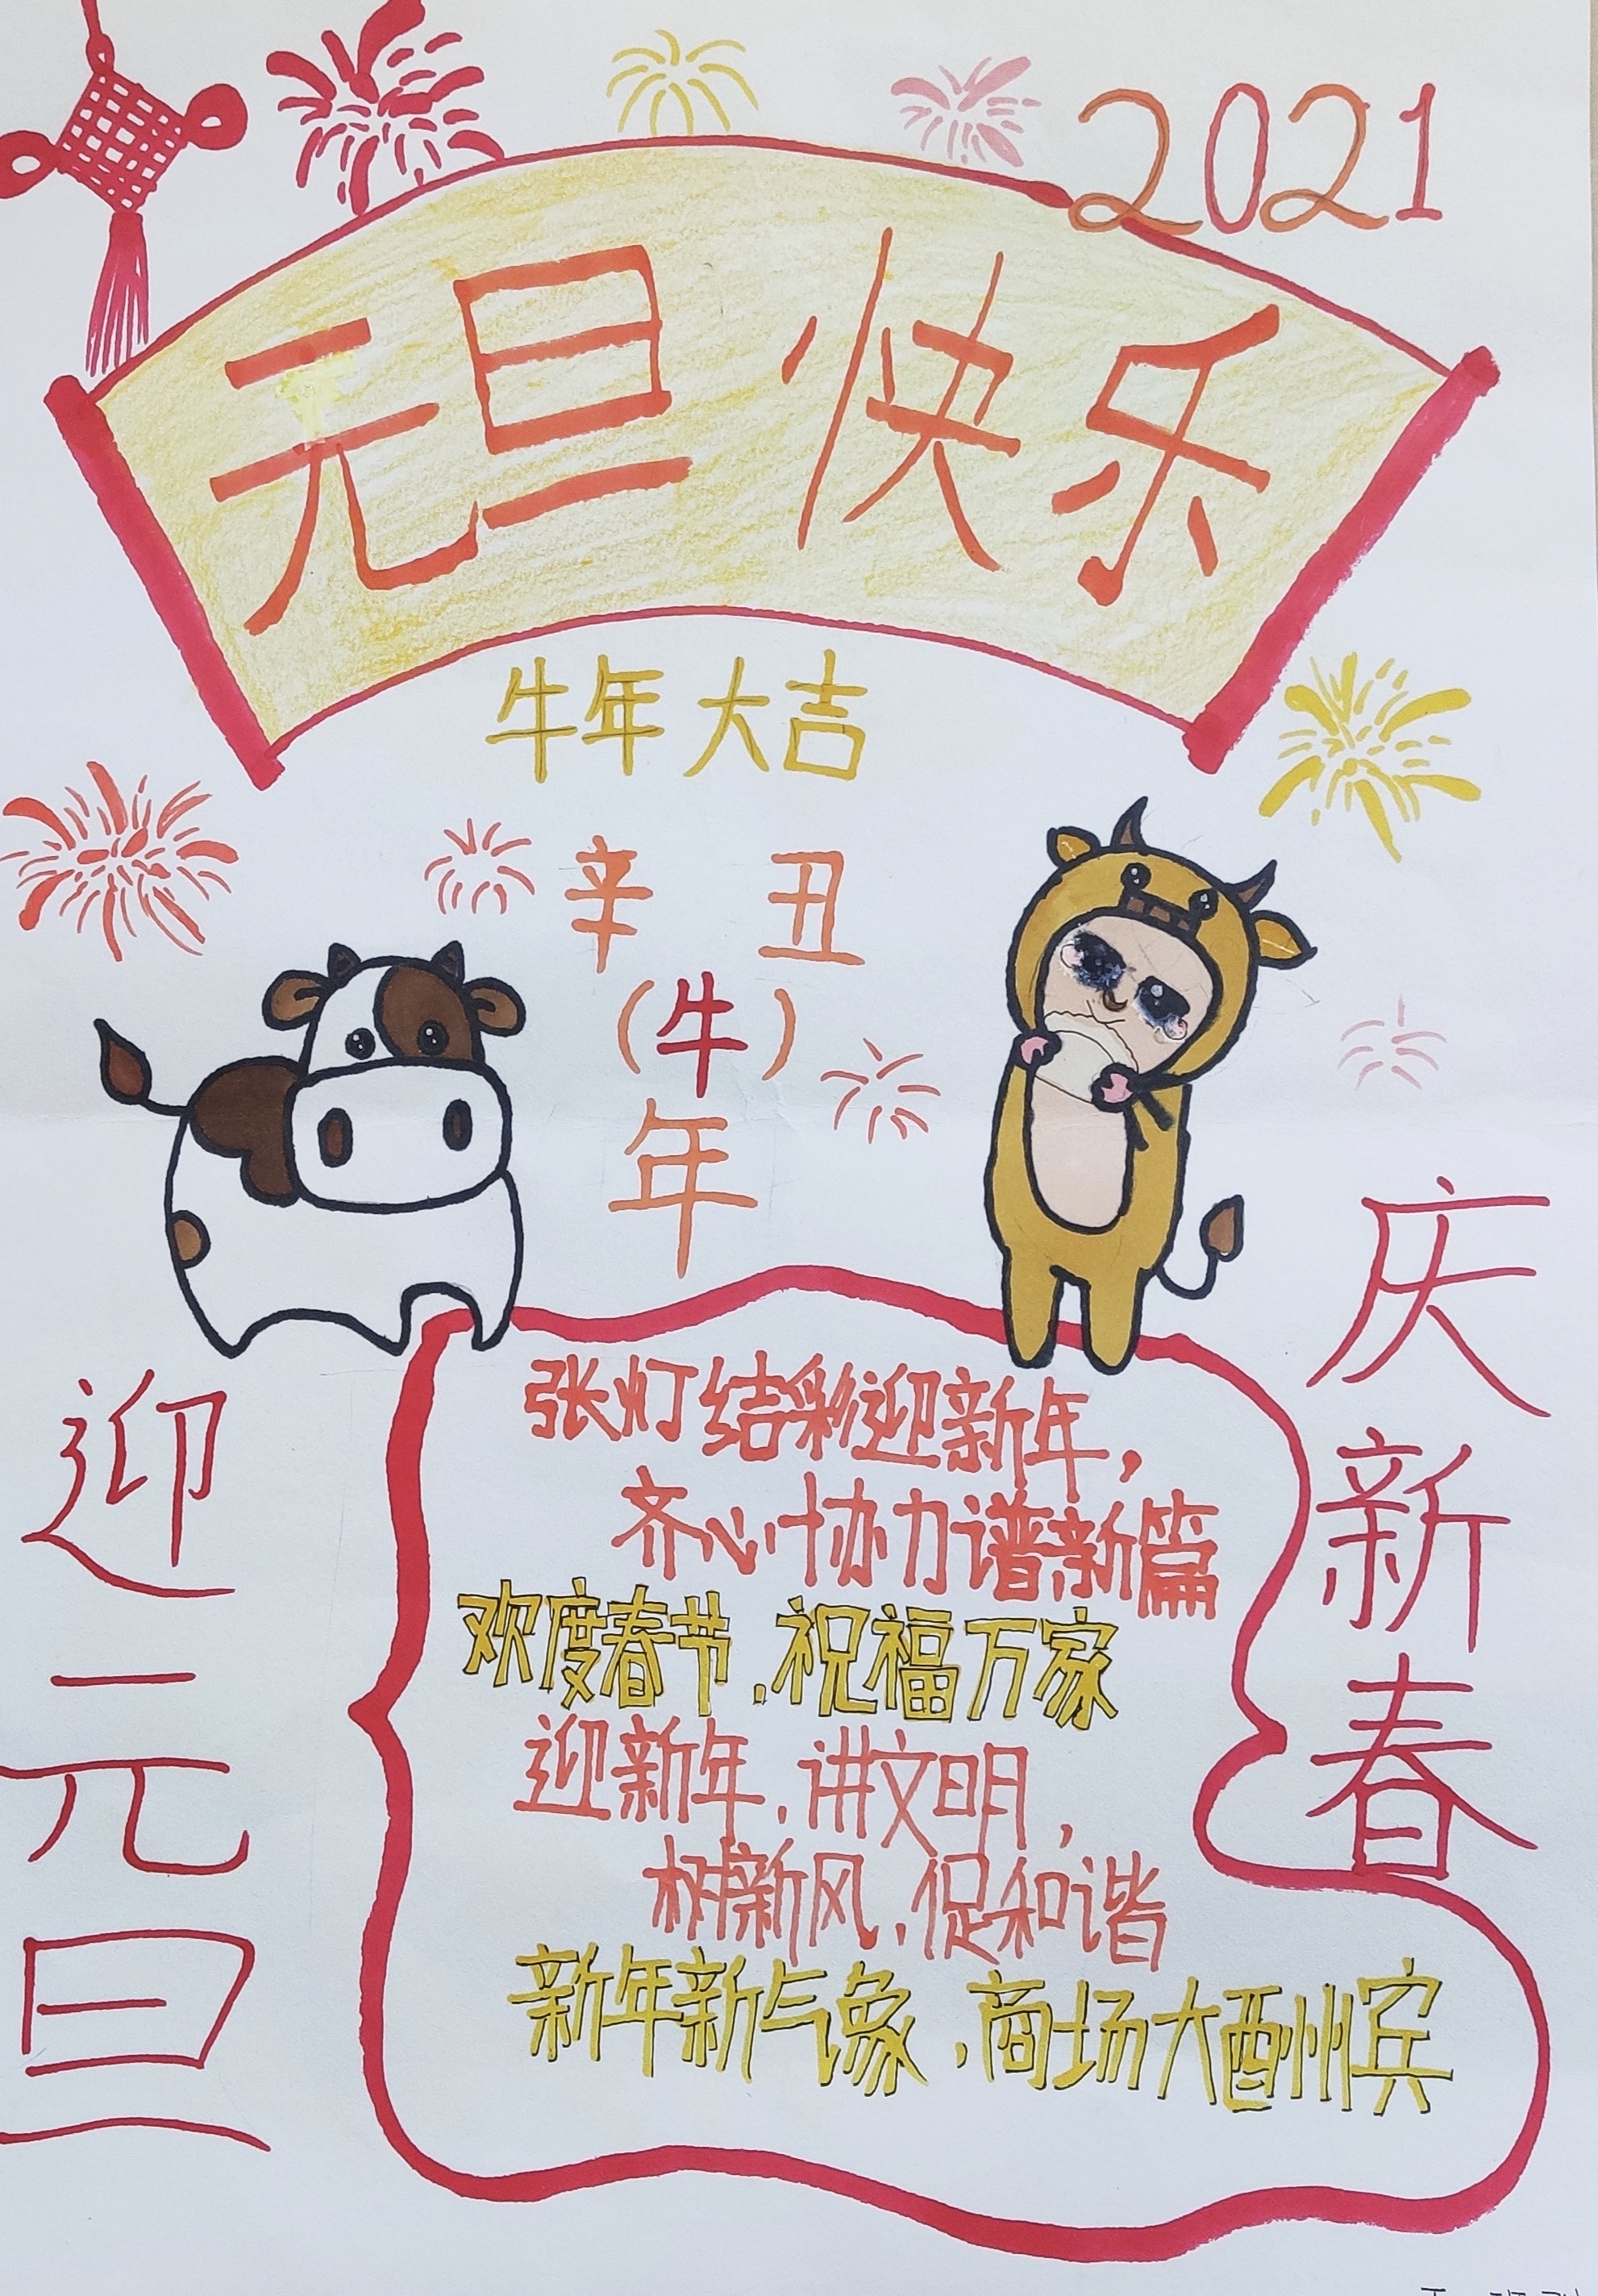 2021
元旦快乐
牛年大吉
辛 丑
(牛)
年
迎元旦
庆新春
张灯结彩迎新年，
齐心协力谱新篇
欢度春节，祝福万家
迎新年，讲文明，
树新风，促和谐
新年新气象，商场大酬宾